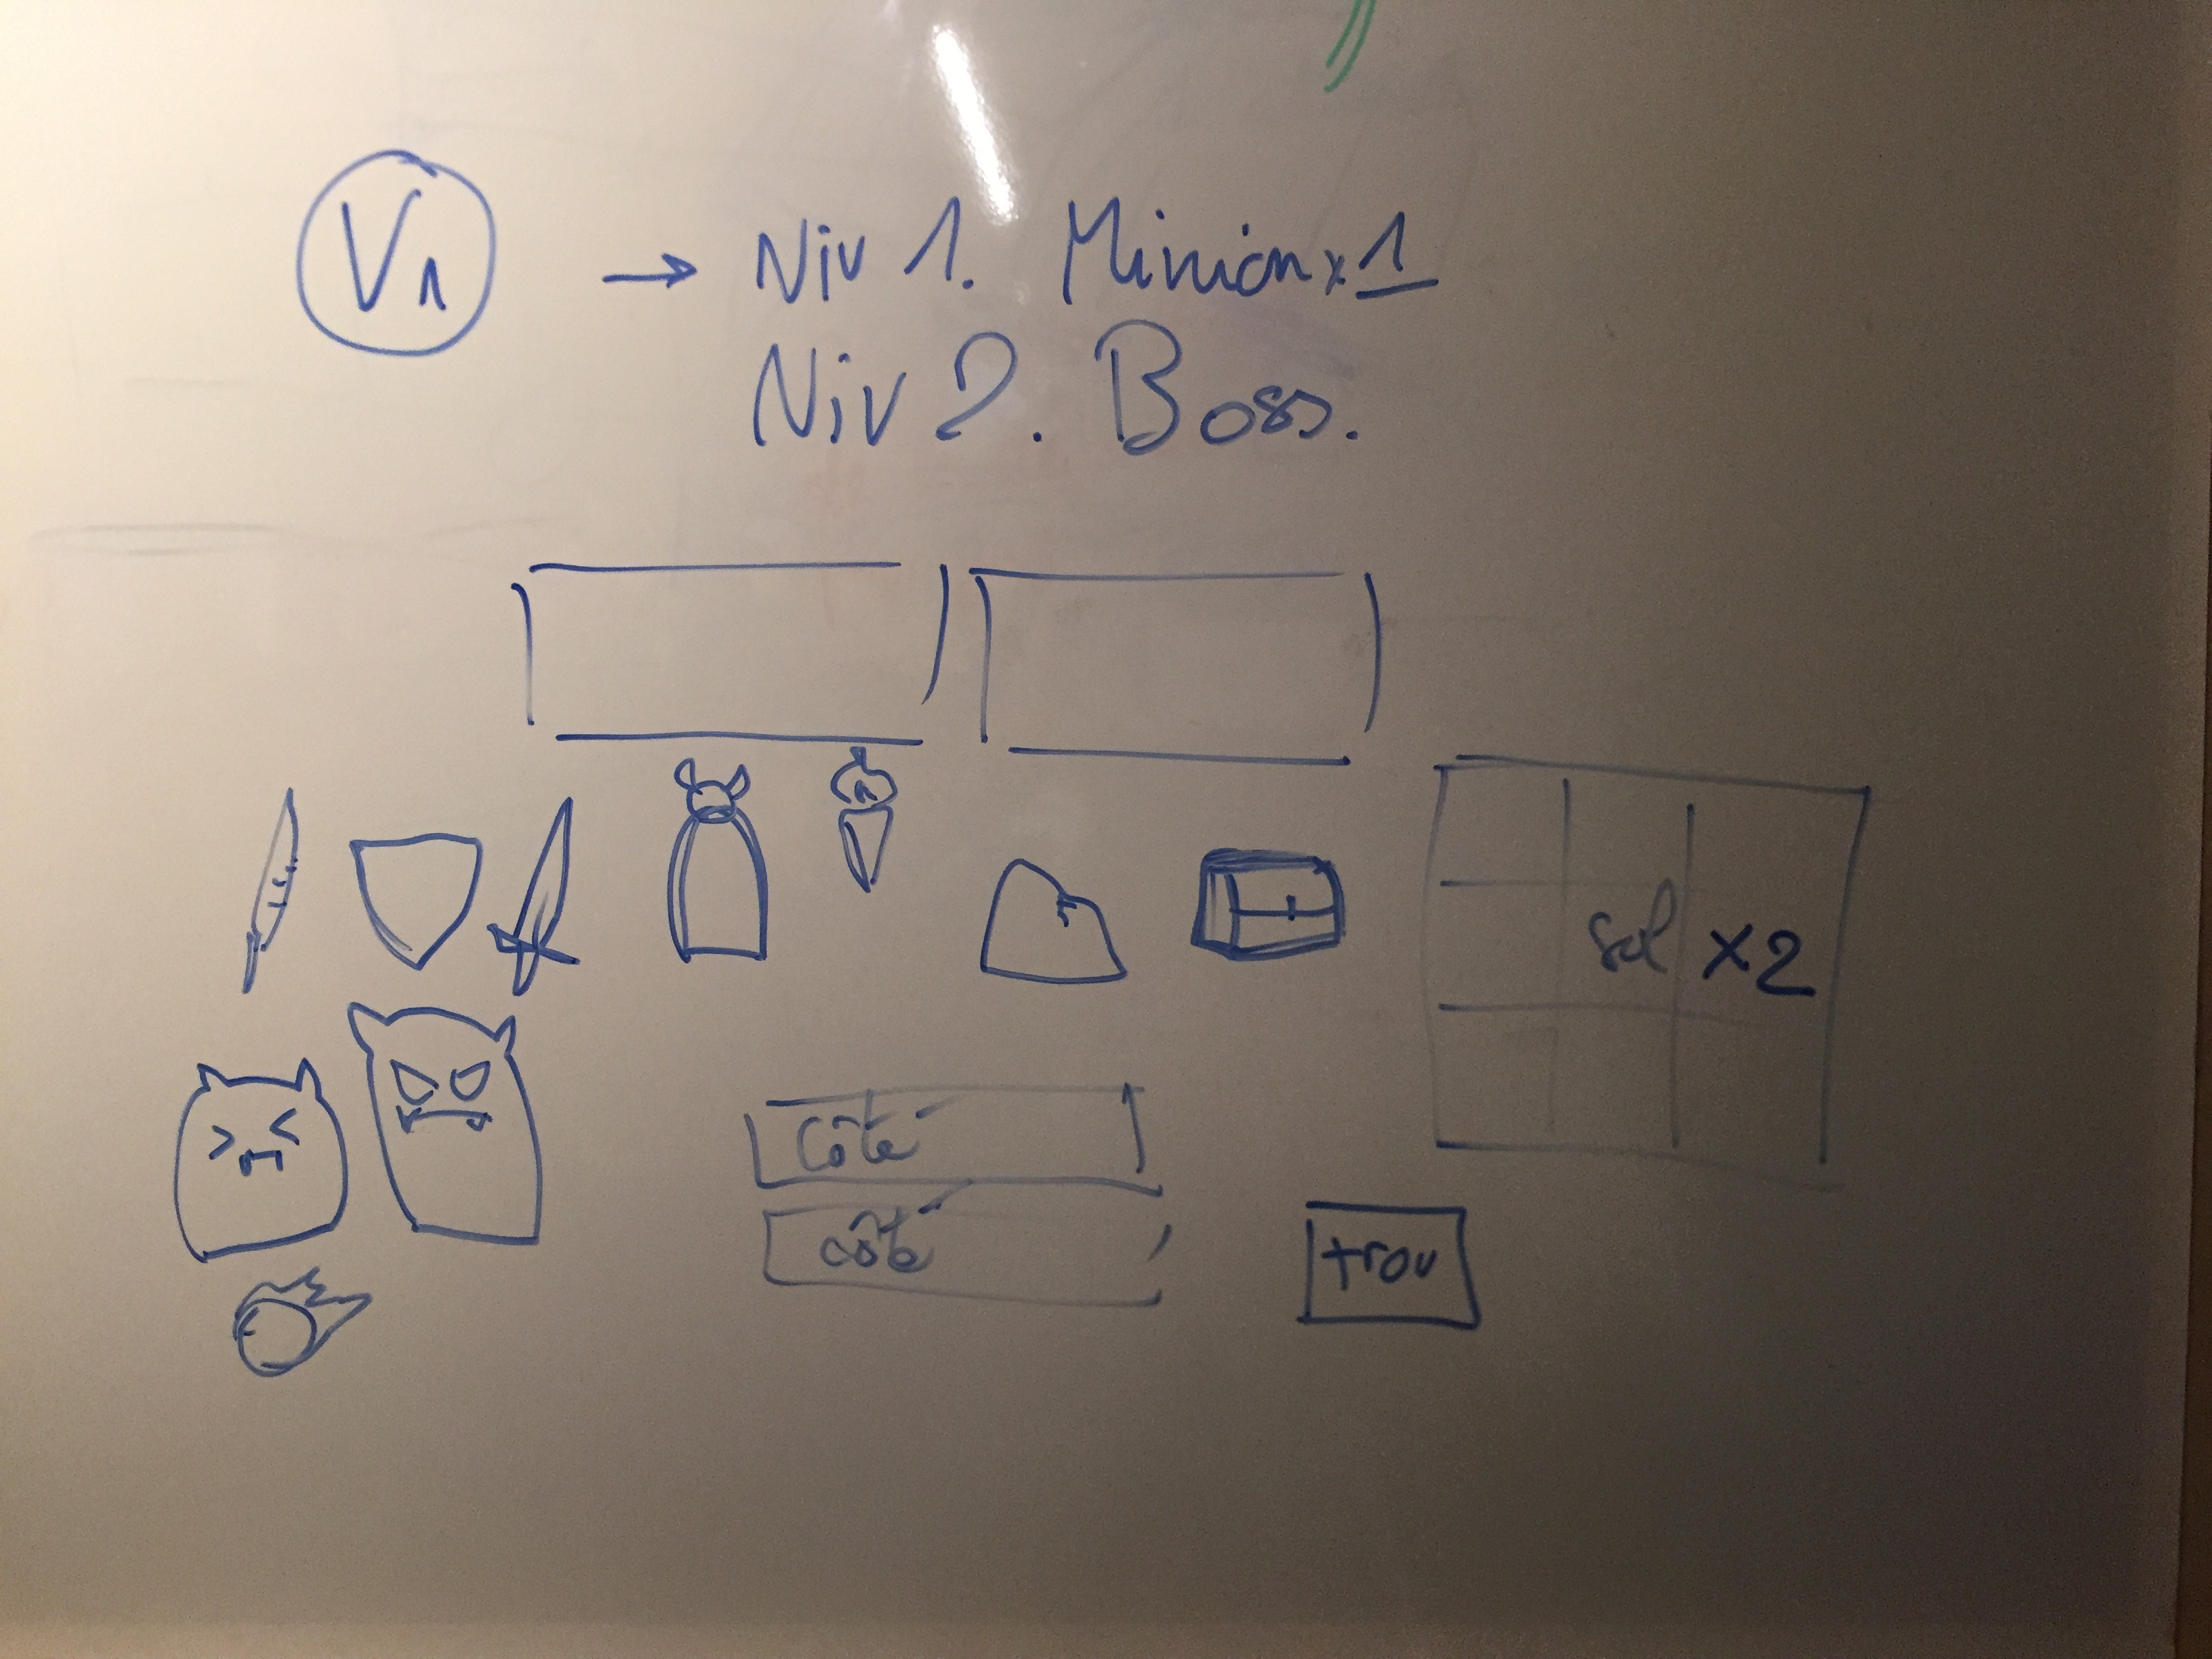 V1 → Niv 1. Minion x 1
Niv 2. Boss.
sol x2
Côté
côté
trou